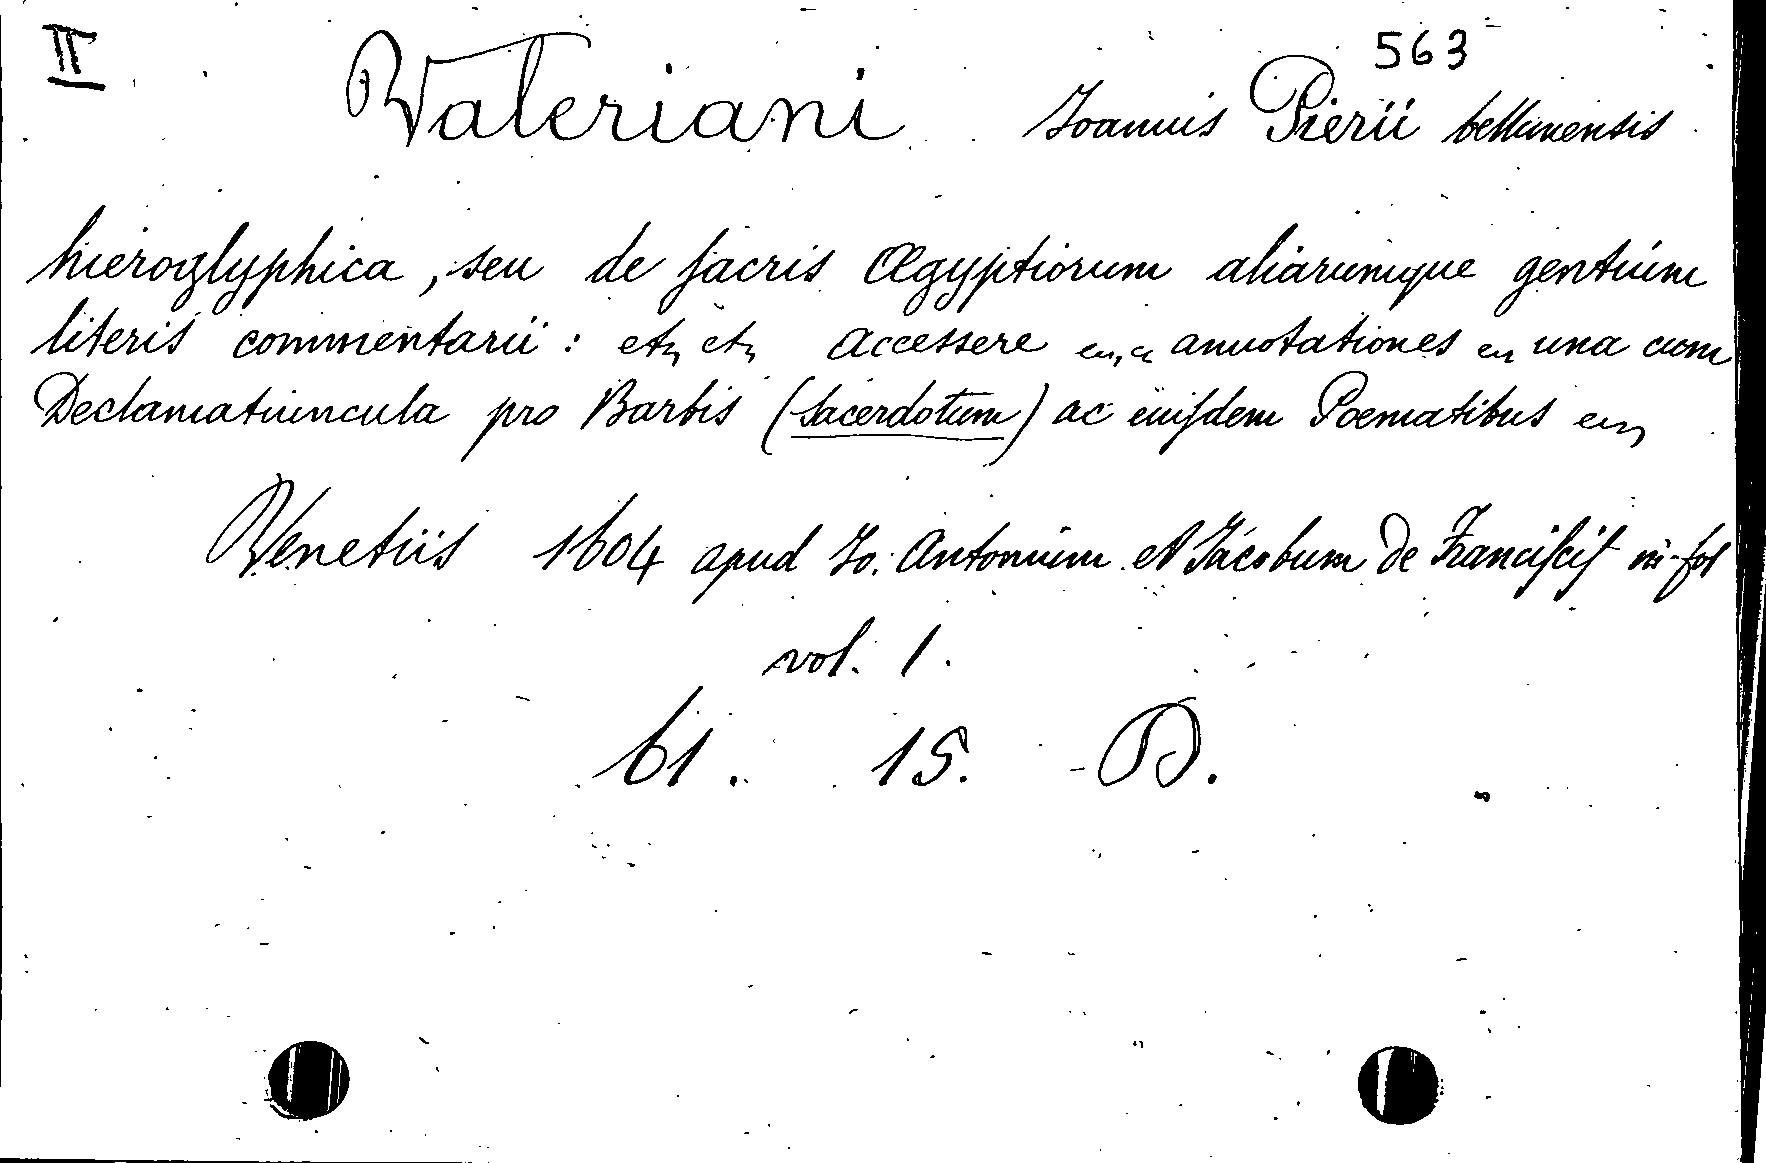 II 563
Valeriani Joannis Pierii bellunensis
hieroglyphica, seu de sacris Ægyptiorum aliarumque gentium
literis commentarii: etc etc accessere annotationes una cum
Declamatiuncula pro Barbis (sacerdotum) ac eiusdem Poematibus
Venetiis 1604 apud Jo. Antonium et Jacobum De Franciscis in-fol
vol. 1.
61. 15. D.